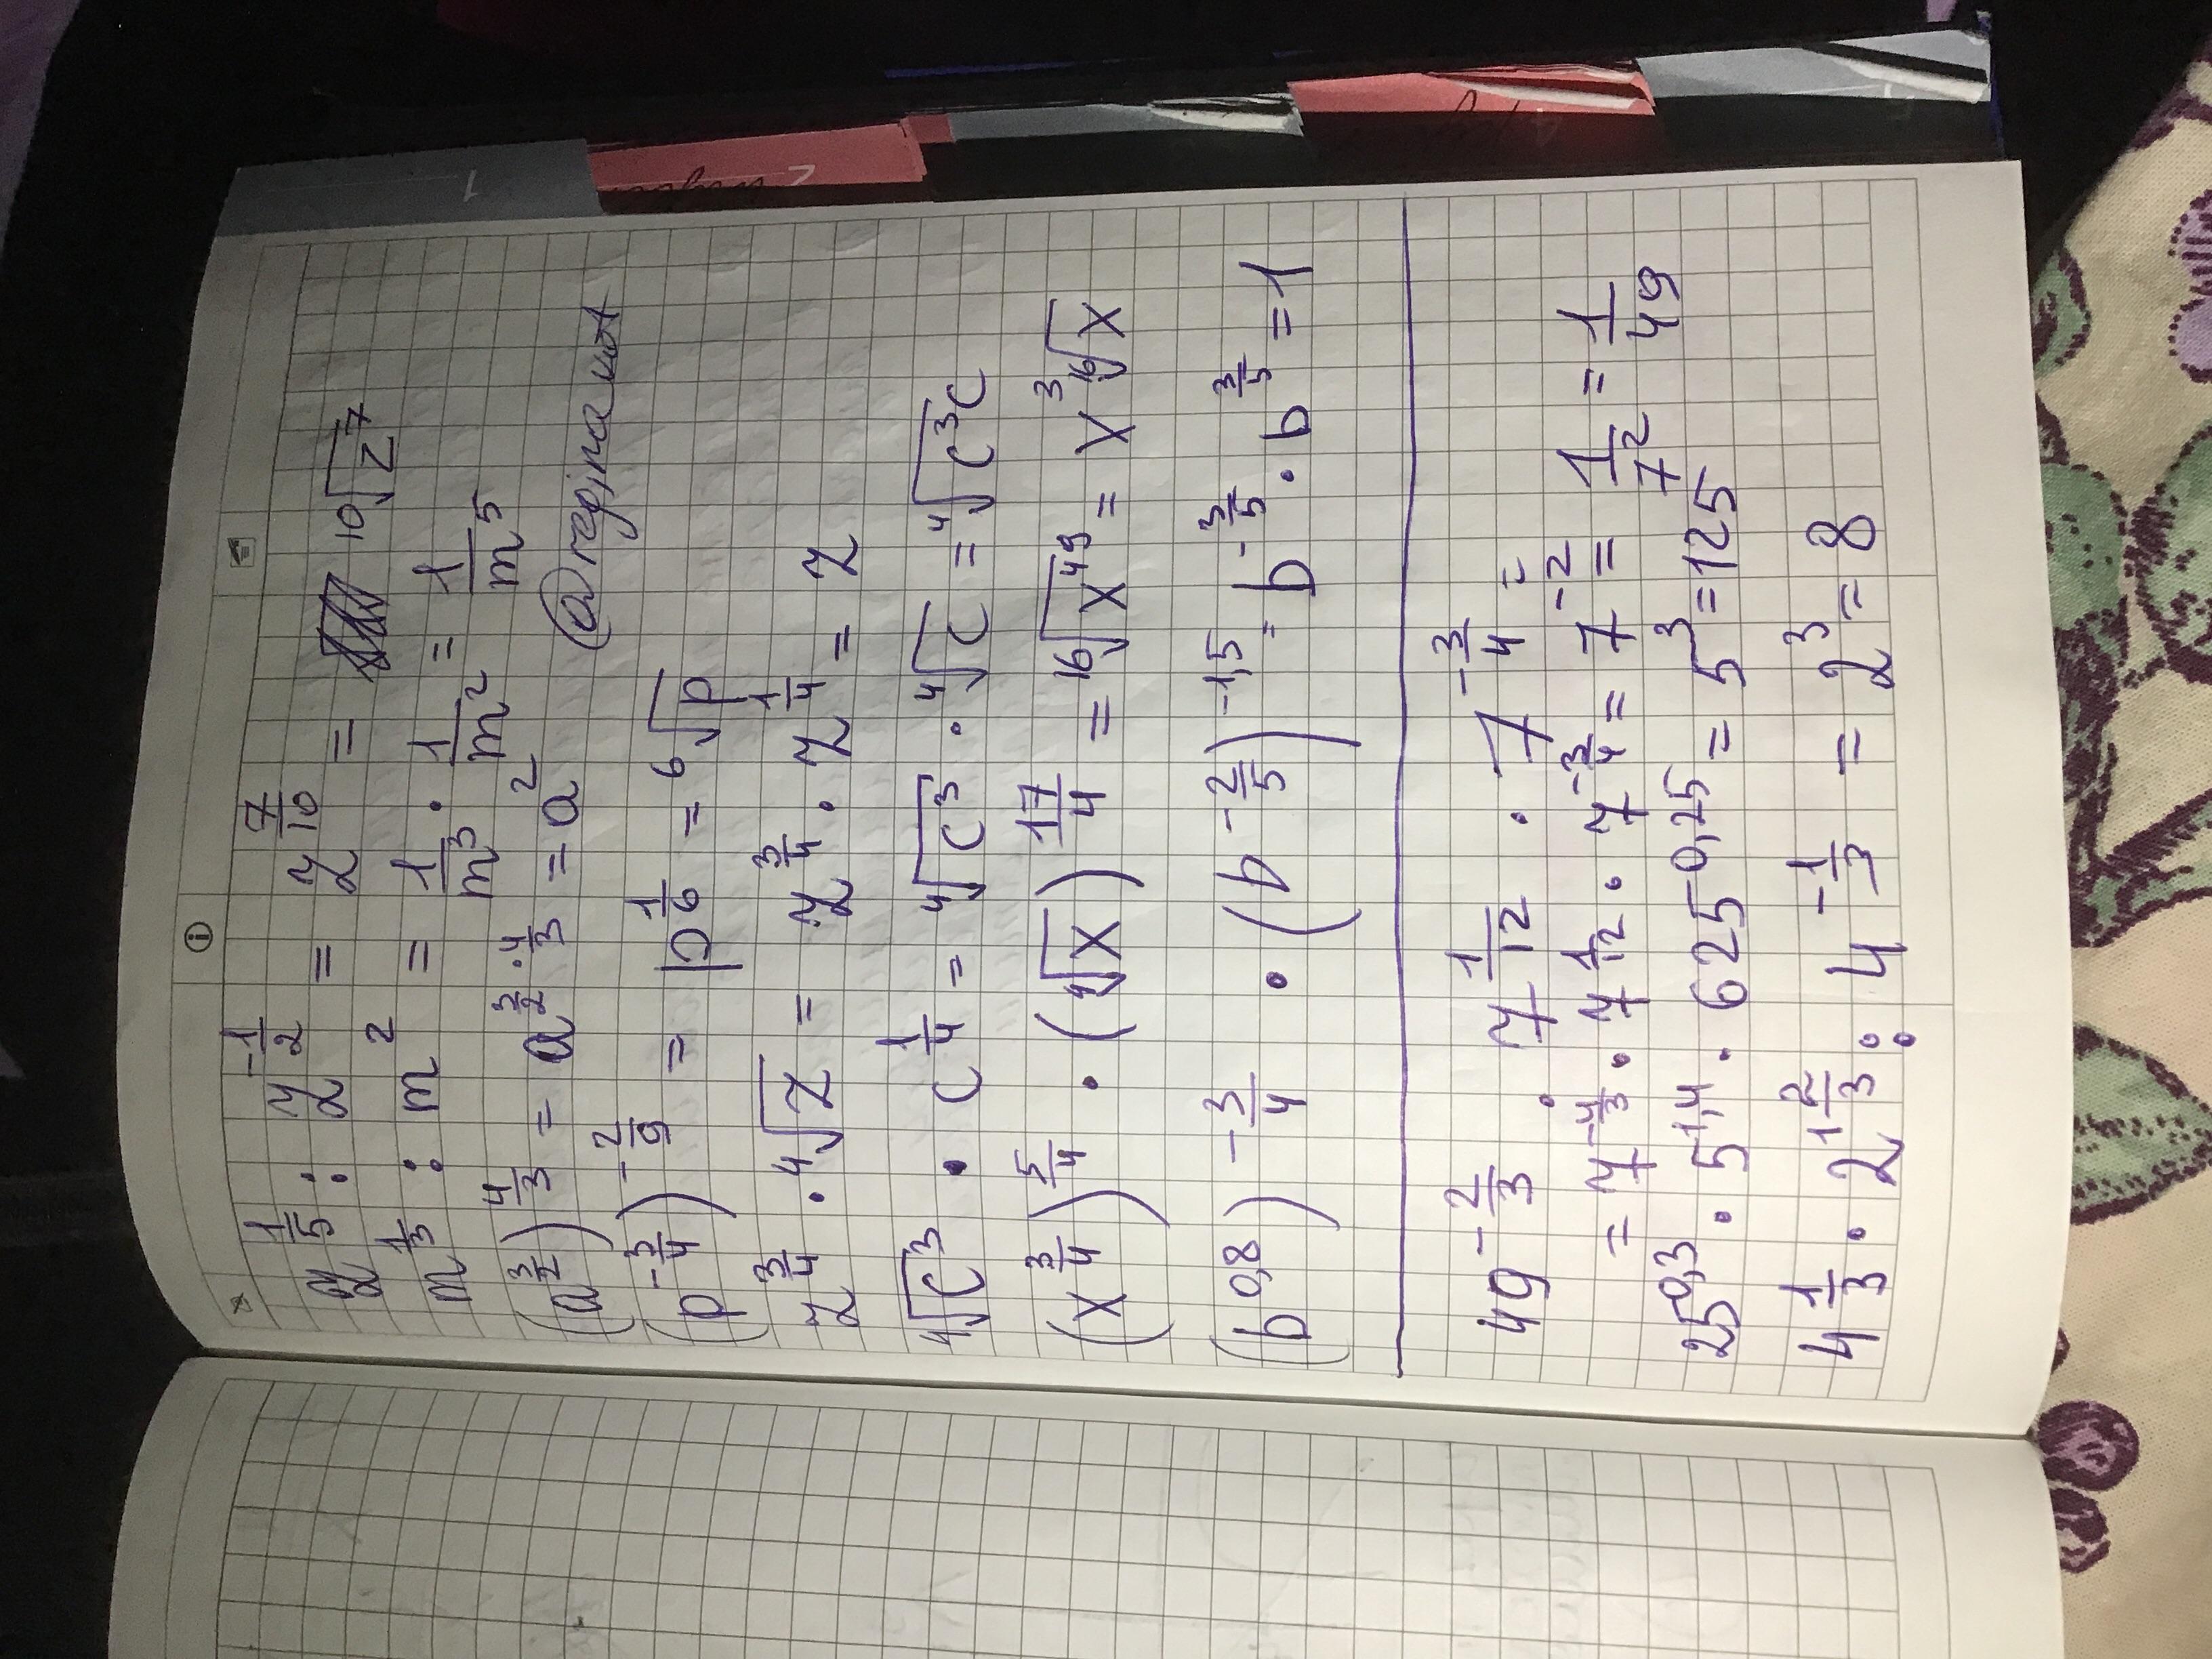 z^{\frac{1}{5}} : z^{-\frac{1}{2}} = z^{\frac{7}{10}} = \sqrt[10]{z^7}
m^{\frac{1}{3}} : m^2 = \frac{1}{m^3} \cdot \frac{1}{m^2} = \frac{1}{m^5}
(a^{\frac{3}{2}})^{\frac{4}{3}} = a^{\frac{3}{2} \cdot \frac{4}{3}} = a^2
@reginavot
(p^{-\frac{3}{4}})^{-\frac{2}{9}} = p^{\frac{1}{6}} = \sqrt[6]{p}
z^{\frac{3}{4}} \cdot \sqrt[4]{z} = z^{\frac{3}{4}} \cdot z^{\frac{1}{4}} = z
\sqrt[4]{c^3} \cdot c^{\frac{1}{4}} = \sqrt[4]{c^3} \cdot \sqrt[4]{c} = \sqrt[4]{c^3c}
(x^{\frac{3}{4}})^{\frac{5}{4}} \cdot (\sqrt[4]{x})^{\frac{17}{4}} = \sqrt[16]{x^{49}} = x^3 \sqrt[16]{x}
(b^{0,8})^{-\frac{3}{4}} \cdot (b^{-\frac{2}{5}})^{-1,5} = b^{-\frac{3}{5}} \cdot b^{\frac{3}{5}} = 1
49^{-\frac{2}{3}} \cdot 7^{\frac{1}{12}} \cdot 7^{-\frac{3}{4}} =
= 7^{-\frac{4}{3}} \cdot 7^{\frac{1}{12}} \cdot 7^{-\frac{3}{4}} = 7^{-2} = \frac{1}{7^2} = \frac{1}{49}
25^{0,3} \cdot 5^{1,4} \cdot 625^{0,25} = 5^3 = 125
4^{\frac{1}{3}} \cdot 2^{1\frac{2}{3}} : 4^{-\frac{1}{3}} = 2^3 = 8